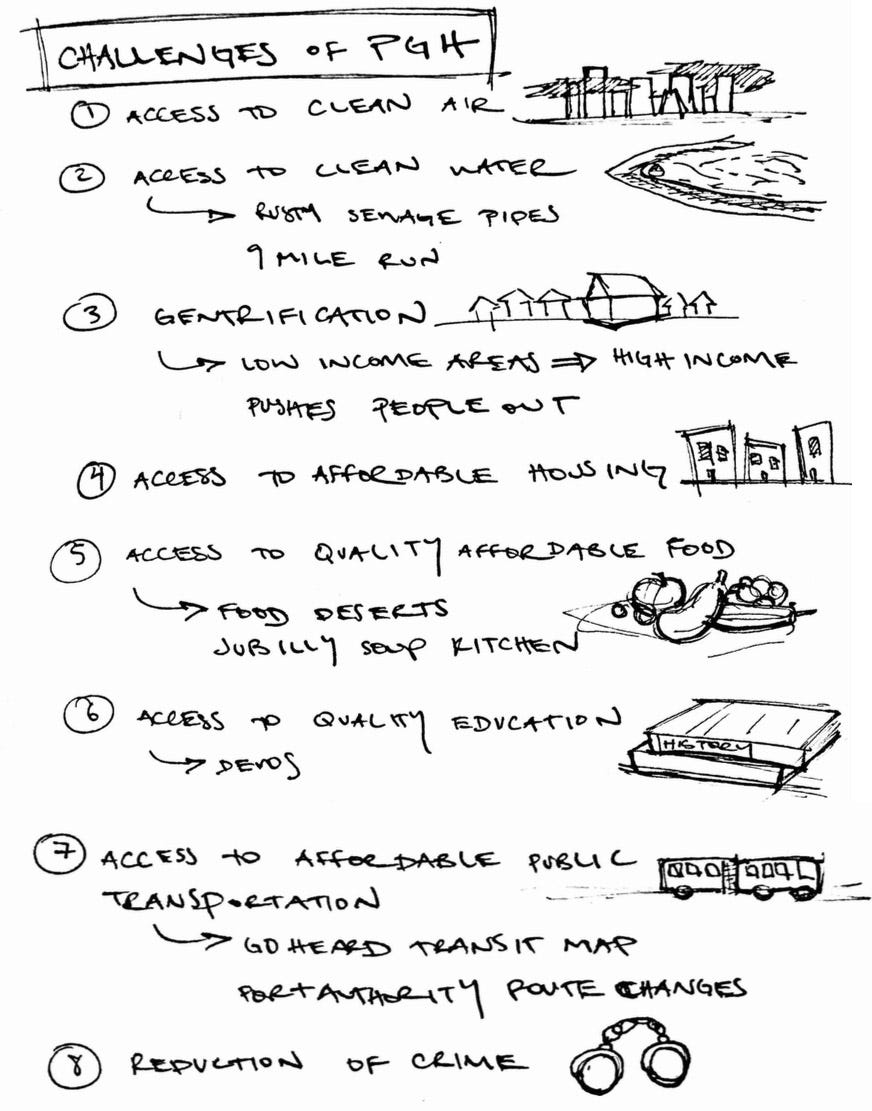 CHALLENGES OF PGH
1 ACCESS TO CLEAN AIR
2 ACCESS TO CLEAN WATER
RUSTY SEWAGE PIPES
9 MILE RUN
3 GENTRIFICATION
LOW INCOME AREAS ⇒ HIGH INCOME
PUSHES PEOPLE OUT
4 ACCESS TO AFFORDABLE HOUSING
5 ACCESS TO QUALITY AFFORDABLE FOOD
FOOD DESERTS
JUBILLY SOUP KITCHEN
6 ACCESS TO QUALITY EDUCATION
HISTORY
DEVOS
7 ACCESS TO AFFORDABLE PUBLIC
TRANSPORTATION
GO HEARD TRANSIT MAP
PORT AUTHORITY ROUTE CHANGES
8 REDUCTION OF CRIME